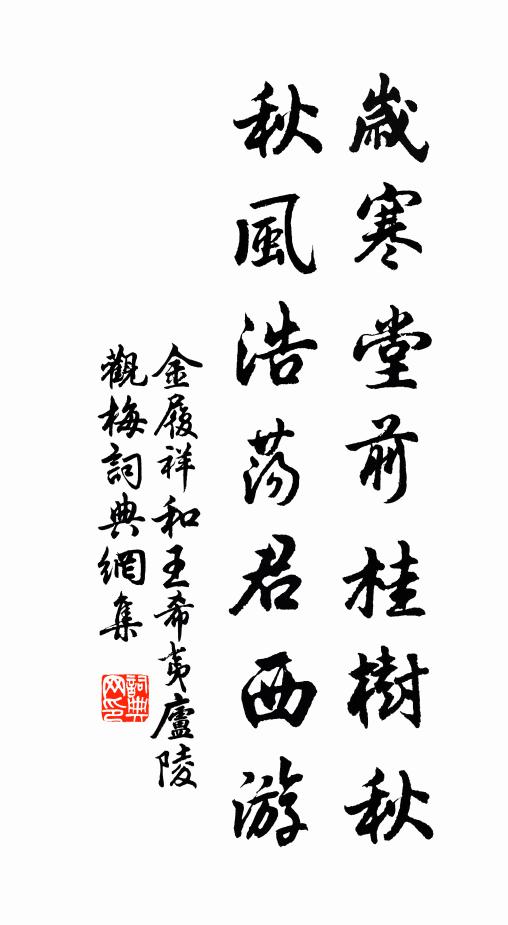 歲寒堂前桂樹秋
秋風浩蕩君西游
金履祥和王希夷廬陵
觀梅詞典網集
詞典網印